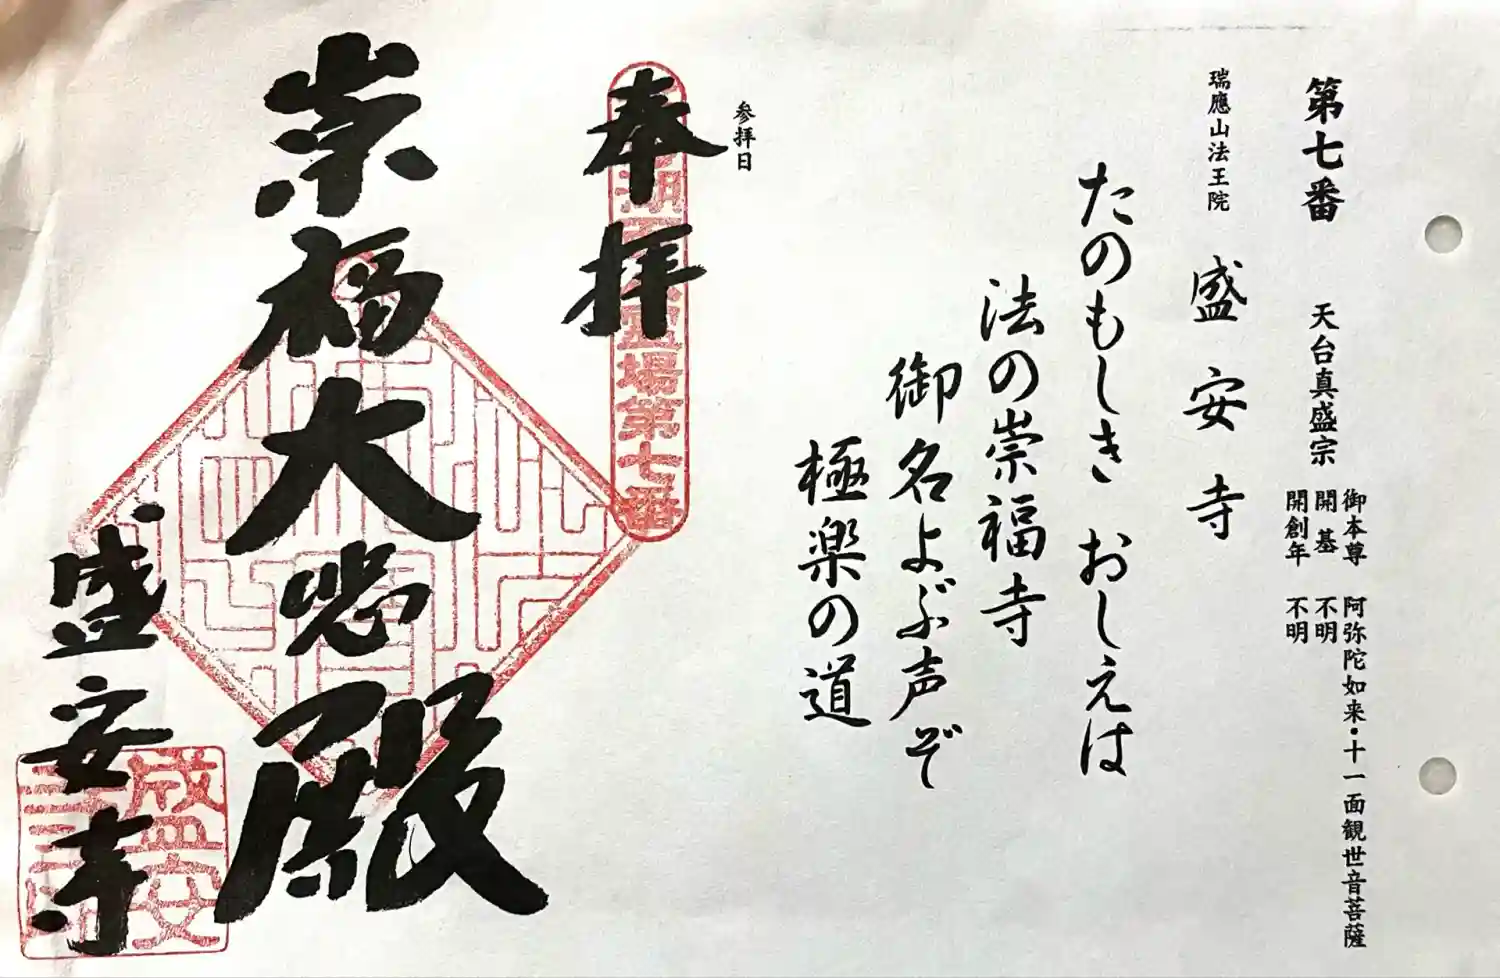 第七番 天台真盛宗
御本尊 阿弥陀如来・十一面観世音菩薩
開基 不明
開創年 不明
瑞應山法王院 盛安寺
たのもしき おしえは
法の崇福寺
御名よぶ声ぞ
極楽の道
参拝日
奉拝
湖西霊場第七番
崇福大悲殿
盛安寺
盛安
寺印